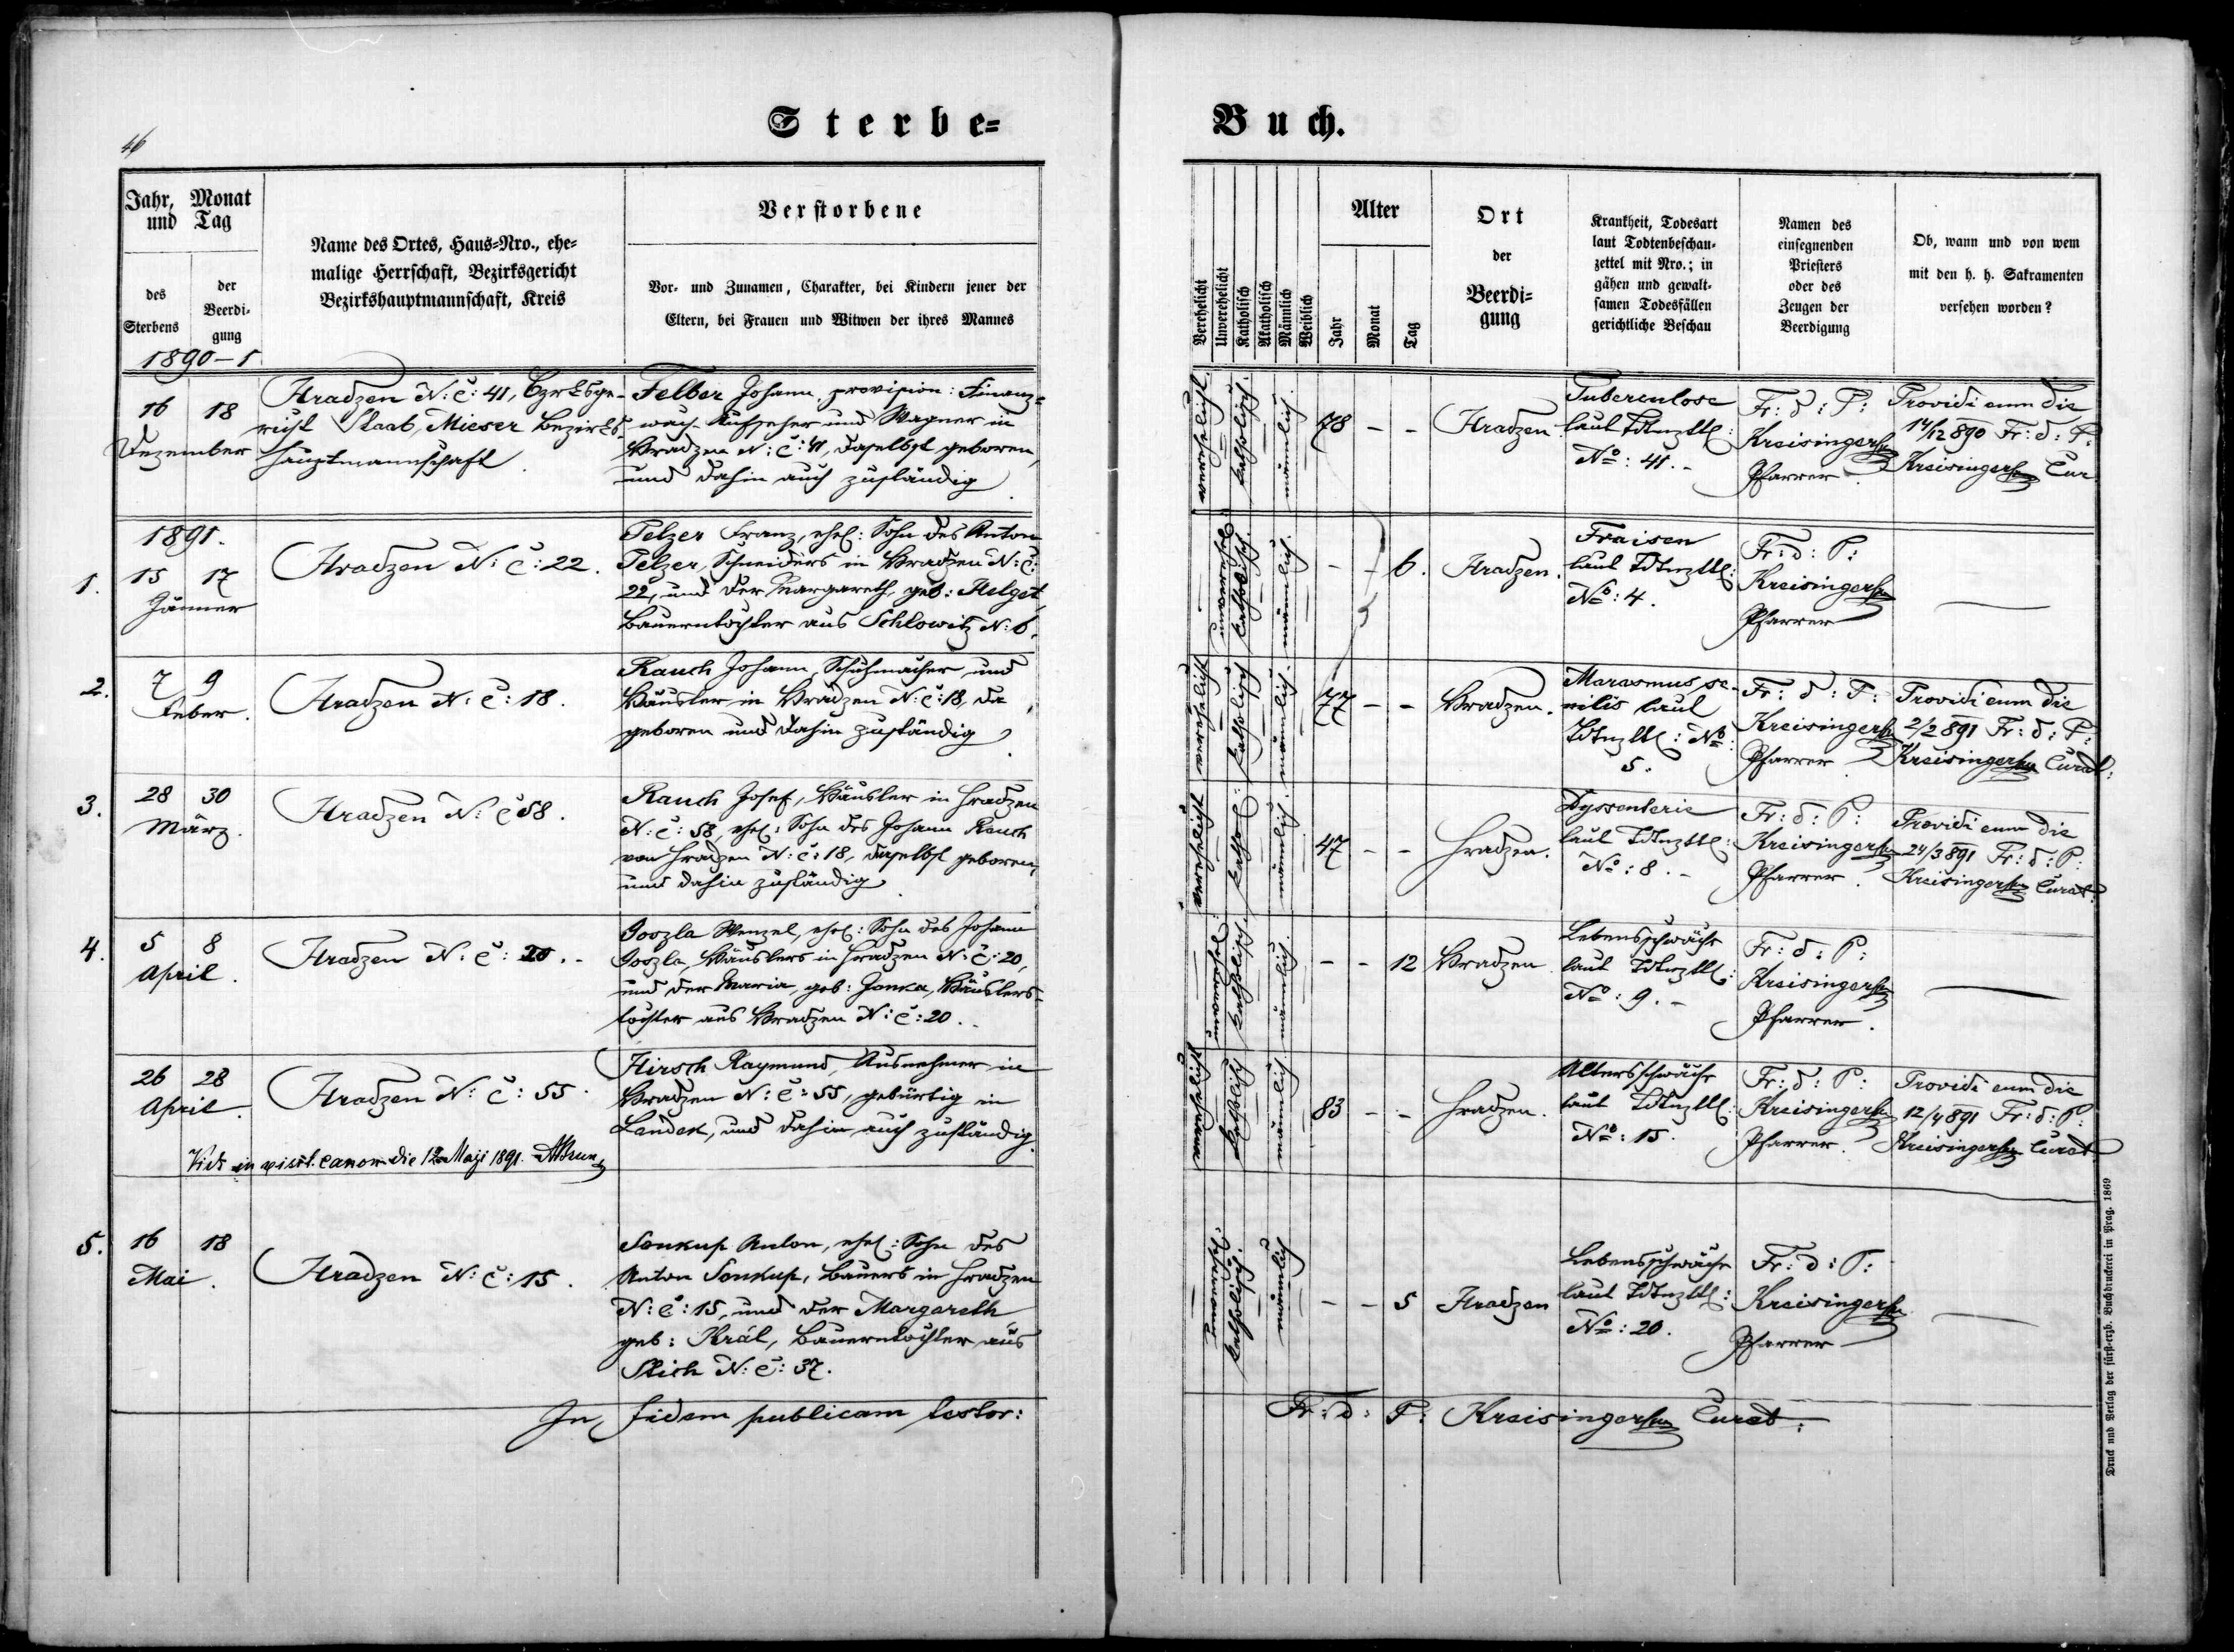 46
Sterbe=
Buch.
Jahr, Monat
und Tag
des
Sterbens
der
Beerdi=
gung
1890–1
Name des Ortes, Haus=Nro., ehe=
malige Herrschaft, Bezirksgericht
Bezirkshauptmannschaft, Kreis
Verstorbene
Vor= und Zunamen, Charakter, bei Kindern jener der
Eltern, bei Frauen und Witwen der ihres Mannes
Verehelicht
Unverehelicht
Katholisch
Akatholisch
Männlich
Weiblich
Alter
Jahr
Monat
Tag
Ort
der
Beerdi=
gung
Krankheit, Todesart
laut Todtenbeschau=
zettel mit Nro.; in
gähen und gewalt=
samen Todesfällen
gerichtliche Beschau
Namen des
einsegnenden
Priesters
oder des
Zeugen der
Beerdigung
Ob, wann und von wem
mit den h. h. Sakramenten
versehen worden?
16 18
Dezember
Hradzen N: č: 41, Bzrksge-
richt Staab, Mieser Bezirks-
hauptmannschaft.
Felber Johann, provision: Finanz=
wach Aufseher und Wagner in
Hradzen N: č: 41, daselbst geboren,
und dahin auch zuständig.
verehelicht.
katholisch.
männlich.
78 - -
Hradzen.
Tuberculose
laut Tdtnzttl:
No: 41.-
Fr: d: P:
Kreisinger
Pfarrer.
Providi eum die
14/12 890 Fr: d: P.
Kreisinger Cur
1.
1891.
15 17
Jänner
Hradzen N: č: 22.
Pelzer Franz, ehel: Sohn des Anton
Pelzer, Schneiders in Hradzen N: č:
22, und der Margareth, geb: Helget,
Bauerntochter aus Schlowitz N: 6.
unverehel:
katholisch.
männlich.
- - 6.
Hradzen.
Fraisen
laut Tdtnzttl:
No: 4.
Fr: d: P:
Kreisinger
Pfarrer
2.
7 9
Feber.
Hradzen N: č: 18.
Rauch Johann, Schuhmacher und
Häusler in Hradzen N: č: 18, da
geboren und dahin zuständig.
verehelicht
katholisch
männlich.
77 - -
Hradzen.
Marasmus se-
nilis laut
Tdtnzttl: No:
5.
Fr: d: P:
Kreisinger
Pfarrer
Providi eum die
2/2 891 Fr: d: P:
Kreisinger Curat:
3.
28 30
März.
Hradzen N: č 58.
Rauch Josef, Häusler in Hradzen
N: č: 58, ehel: Sohn des Johann Rauch
von Hradzen N: č: 18, daselbst geboren,
und dahin zuständig.
verehelicht
kathol:
männlich.
47 - -
Hradzen.
Dyssenterie
laut Tdtnzttl:
No: 8.-
Fr: d: P:
Kreisinger
Pfarrer.
Providi eum die
24/3 891 Fr: d: P:
Kreisinger Curat:
4.
5 8
April.
Hradzen N: č: 20.-
Wenzel, ehel: Sohn des Johann
Häuslers in Hradzen N: č: 20,
und der Maria, geb: Janka, Häuslers-
tochter aus Hradzen N: č: 20.
unverehel:
katholisch.
männlich.
- - 12
Hradzen
Lebensschwäche
laut Tdtnzttl:
No: 9.-
Fr: d: P:
Kreisinger
Pfarrer.
26 28
April.
Hradzen N: č: 55.
Hirsch Raymund, Ausnehmer in
Hradzen N: č: 55, gebürtig in
Landek, und dahin auch zuständig.
verehelicht
katholisch
männlich.
83 - -
Hradzen.
Altersschwäche
laut Tdtnzttl:
No: 15.
Fr: d: P:
Kreisinger
Pfarrer.
Providi eum die
12/4 891 Fr: d: P:
Kreisinger Curat
Vidi in visit. canon. die 12 Maji 1891.
5.
16 18
Mai.
Hradzen N: č: 15.
Soukup Anton, ehel: Sohn des
Anton Soukup, Bauers in Hradzen
N: č: 15, und der Margareth
geb: Král, Bauerntochter aus
Stich N: č: 37.
katholisch.
männlich
- - 5
Hradzen
Lebensschwäche
laut Tdtnzttl:
No: 20.
Fr: d: P:
Kreisinger
Pfarrer
In fidem publicam testor:
Fr: d: P: Kreisinger Curat:
Druck und Verlag der fürst=erzb. Buchdruckerei in Prag. 1869